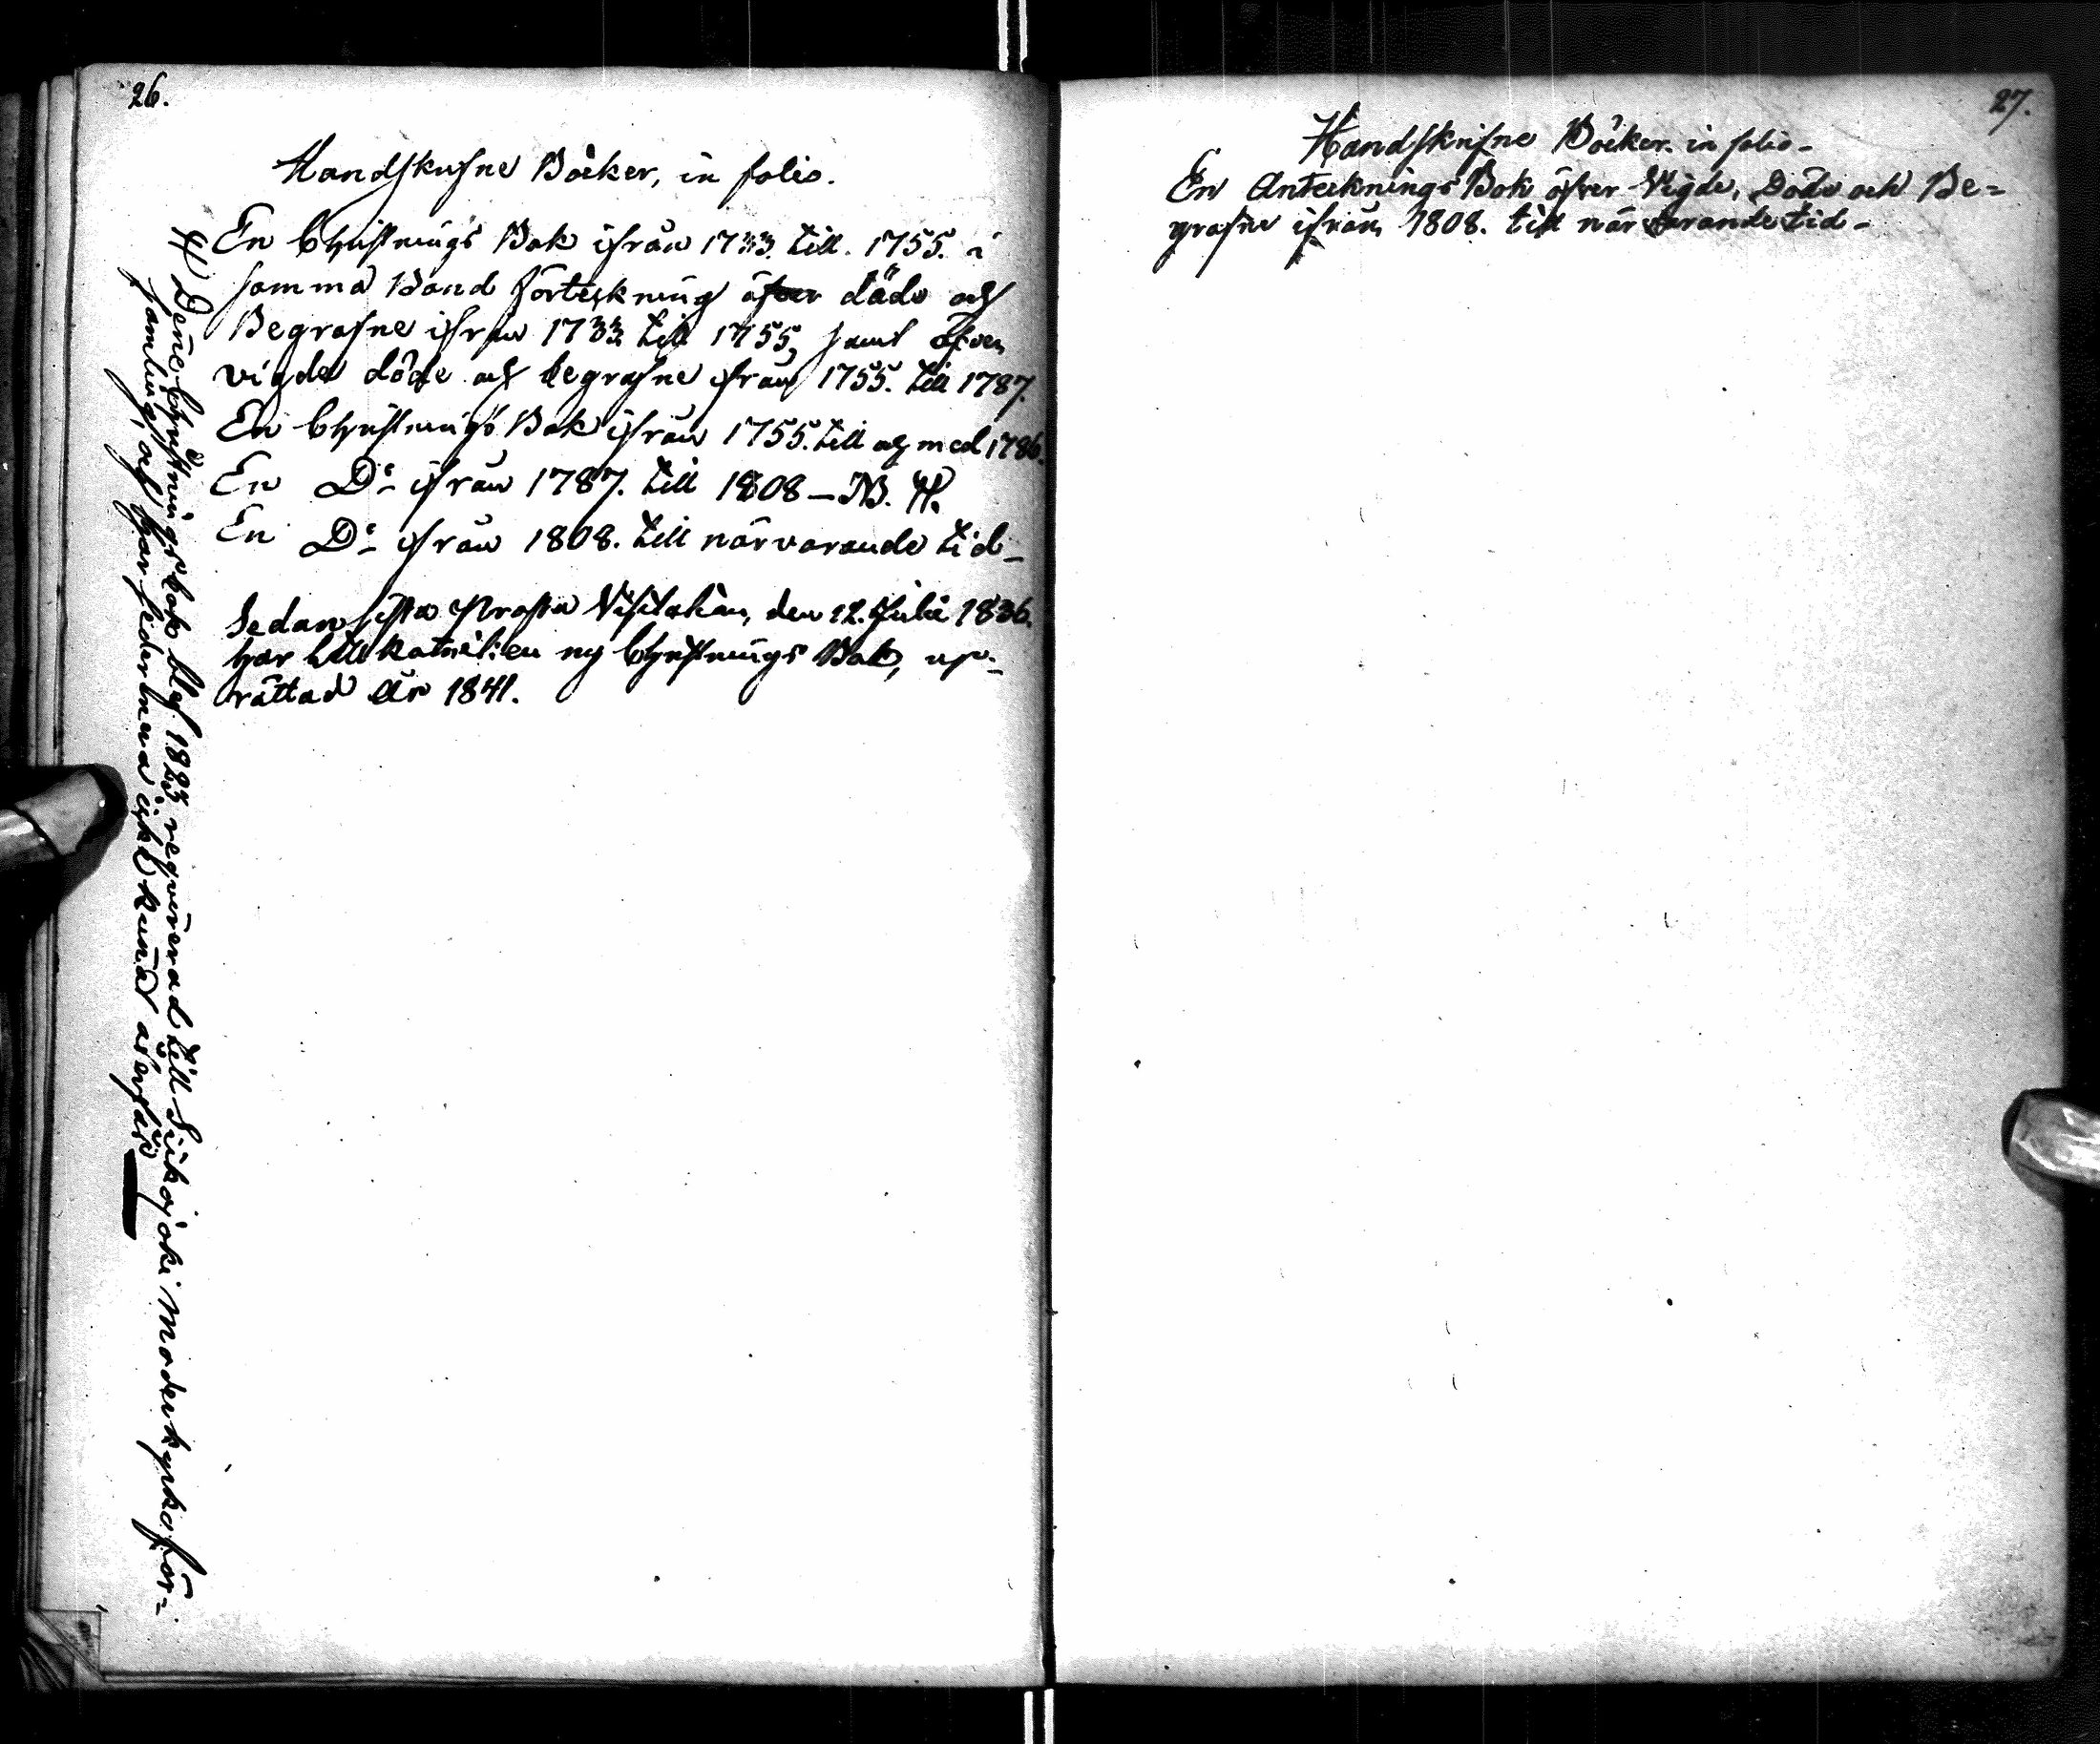 26.
Handskrifne Böcker, in folio.
En Christnings Bok ifrån 1733. till. 1755. i
samma Band förteckning öfver döde och
Begrafne ifrån 1733 till 1755, samt öfver
vigde döde och begrafne ifrån 1755. till 1787.
En Christnings Bok ifrån 1755. till och med 1786.
En Do ifrån 1787. till 1808 — NB.
En Do ifrån 1808. till närvarande tid —
Sedan sista Prosta Visitation, den 12. Julii 1836.
har tillkommit en ny Christnings Bok, up-
rättad År 1841.
Denne Christningsbok blef 1823 reqvirerad till Siikajoki Moderkyrkoför-
samling, och har sedermera icke kunnat återfås
27.
Handskrifne Böcker. in folio -
En Antecknings Bok öfver Vigde, Döde och Be=
grafne ifrån 1808. till närvarande tid -